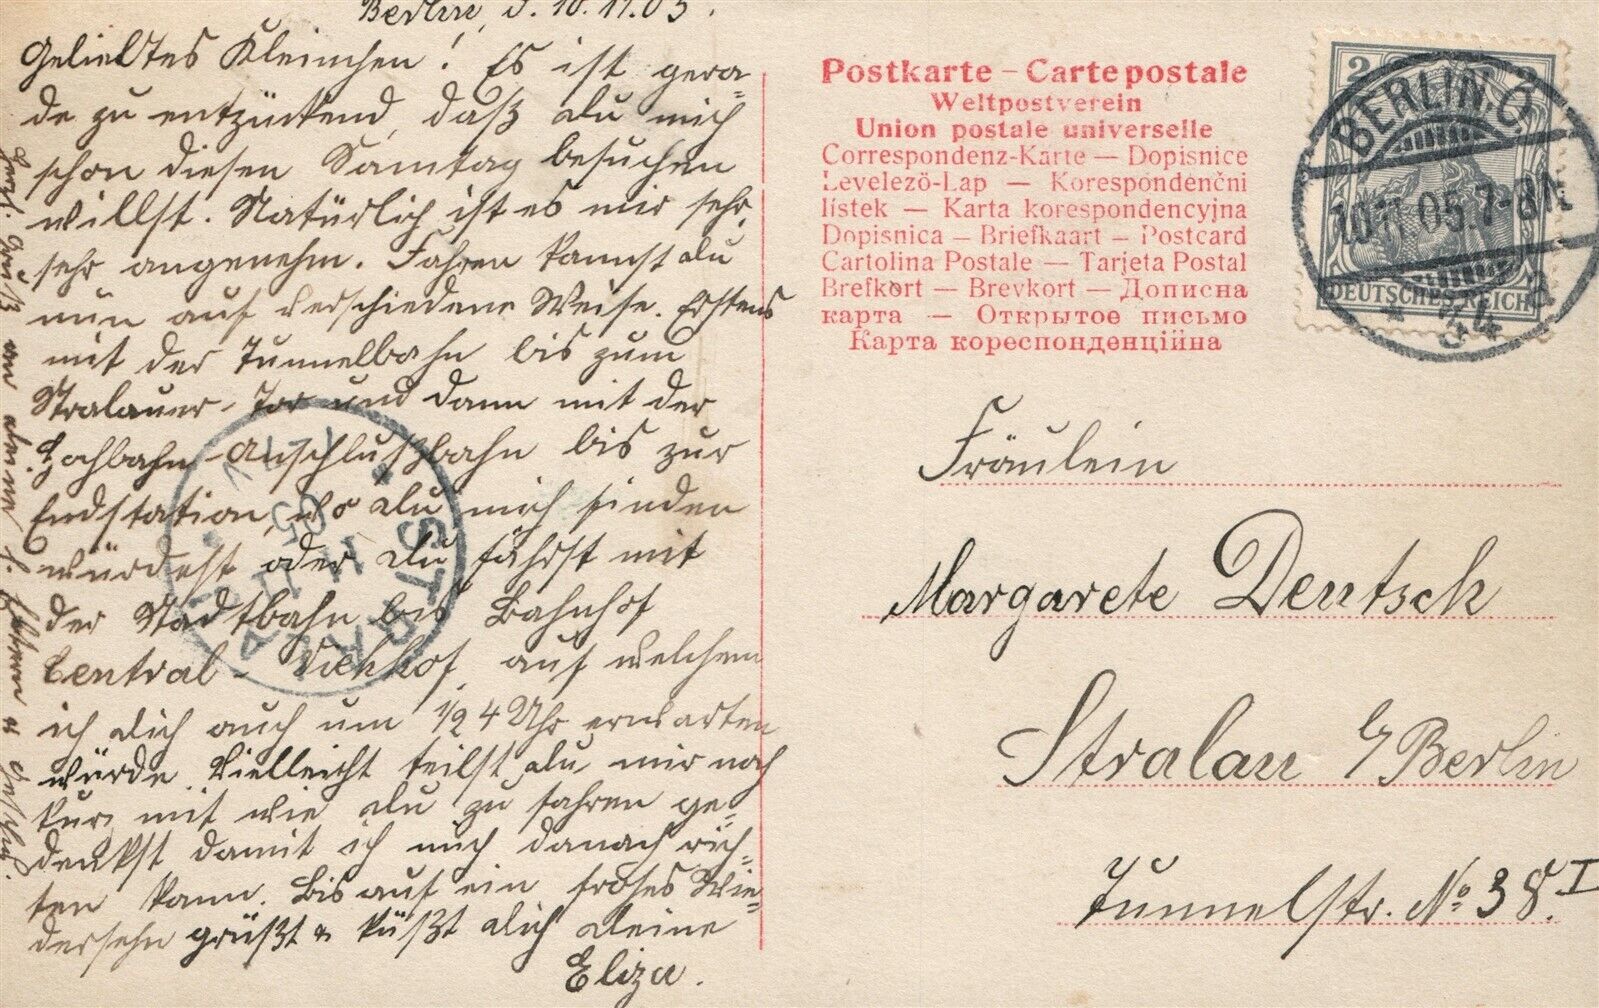 Berlin, d. 10.11.05.
Geliebtes Kleinchen! Es ist gera-
de zu entzückend, daß du mich
schon diesen Samtag besuchen
willst. Natürlich ist es mir sehr,
sehr angenehm. Fahren kannst du
nun auf verschiedene Weise. Erstens
mit der Tunnelbahn bis zum
Stralauer-Tor und dann mit der
Hochbahn-Anschlußbahn bis zur
Endstation, wo du mich finden
würdest oder du fährst mit
der Stadtbahn bis Bahnhof
Central-Viehhof, auf welchem
ich dich auch um 1/2 4 Uhr erwarten
würde. Vielleicht teilst du mir noch
kurz mit wie du zu fahren ge-
denkst damit ich mich danach rich-
ten kann. Bis auf ein frohes Wie-
dersehn grüßt & küßt dich deine
Eliza.
Herzl. Gruß an deine l. Eltern u.
Postkarte – Carte postale
Weltpostverein
Union postale universelle
Correspondenz-Karte — Dopisnice
Levelezö-Lap — Korespondenční
lístek — Karta korespondencyjna
Dopisnica — Briefkaart — Postcard
Cartolina Postale — Tarjeta Postal
Brefkort — Brevkort — Дописна
карта — Открытое письмо
Карта кореспонденційна
2
DEUTSCHES REICH
BERLIN. O.
10.11.05. 7-8N.
* 34 a
STRALAU
11 05
Fräulein
Margarete Deutsch
Stralau b/Berlin
Tunnelstr. No 38. I